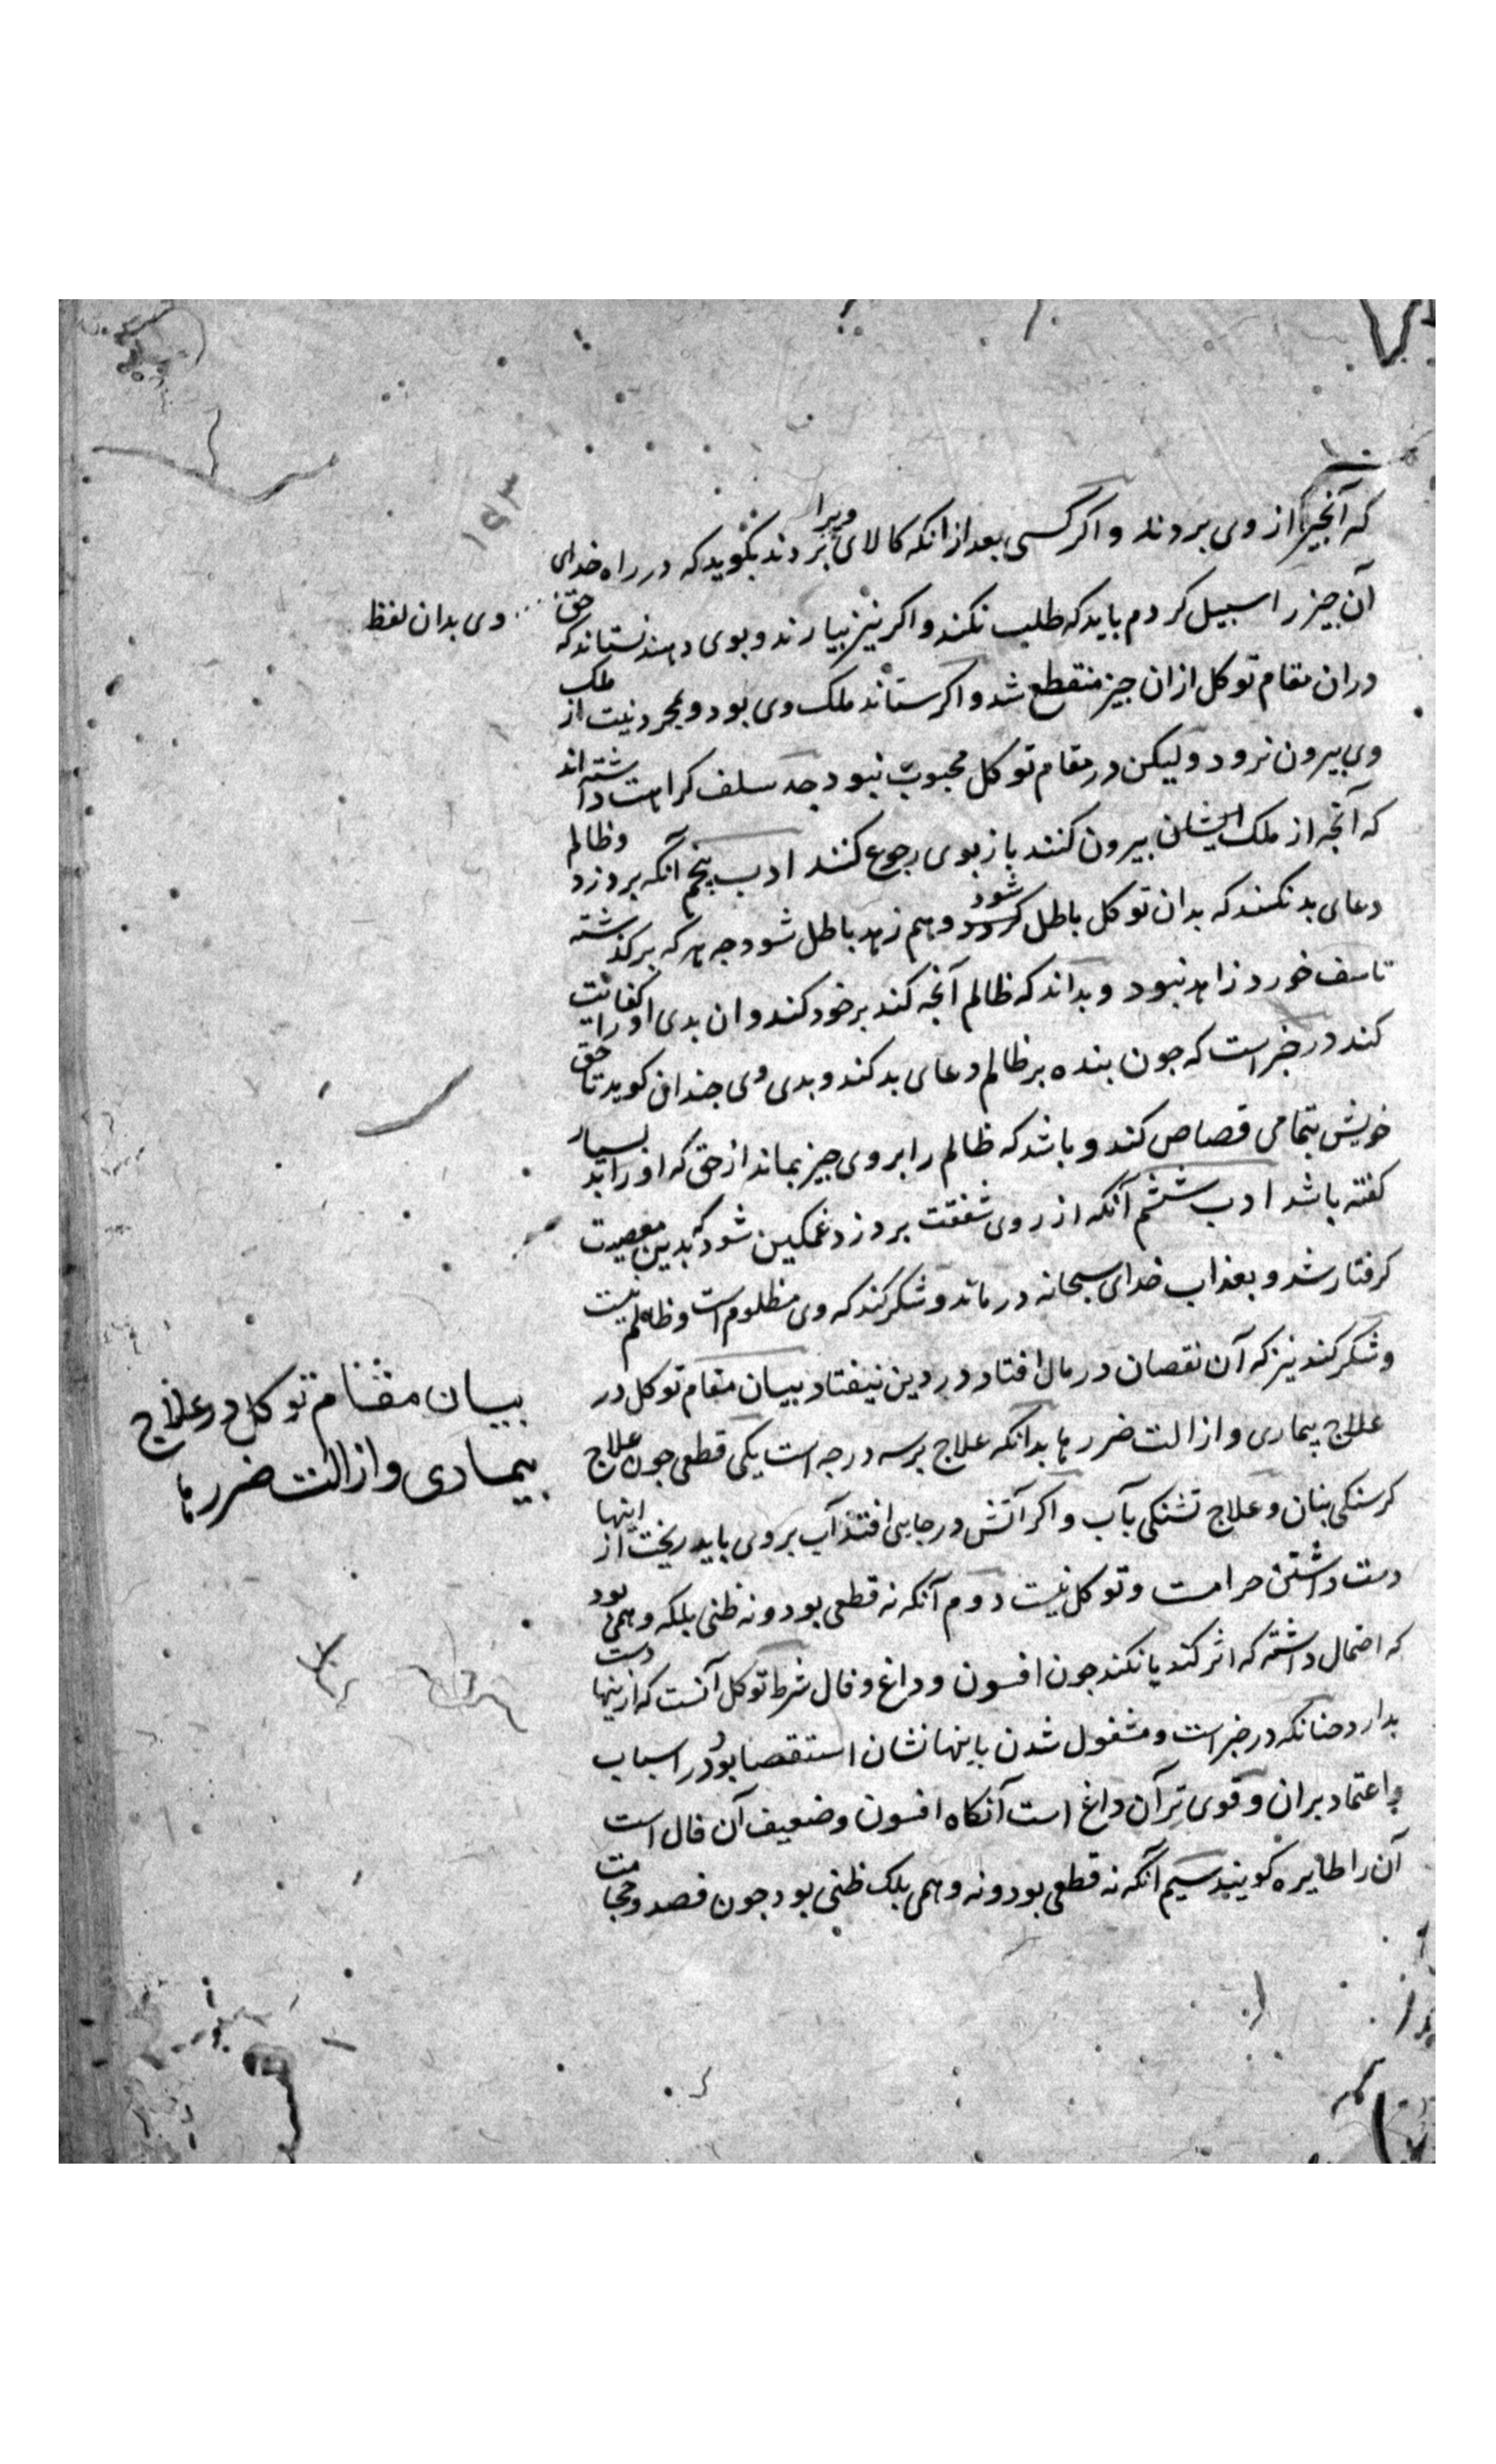 که آنجیز از وی بردند و اکر کسی بعد از انکه کالای ویرا بردند بکوید که در راه خدای
آن جیز را سبیل کردم باید که طلب نکند و اکر نیز بیارند و بوی دهند نستاند که حق
وی بدان لفظ
دران مقام توکل ازان جیز منقطع شد و اکر ستاند ملک وی بود و بمجرد نیت از ملک
وی بیرون نرود ولیکن در مقام توکل محبوب نبود جه سلف کراهت داشته اند
که آنجه از ملک ایشان بیرون کنند باز بوی رجوع کنند ادب پنجم آنکه بر دزد و ظالم
دعای بد نکنند که بدان توکل باطل کردد شود و هم زهد باطل شود جه هر که بر کذشته
تاسف خورد زاهد نبود و بداند که ظالم آنجه کند بر خود کند و ان بدی او را کفایت
کند در خبر است که جون بنده بر ظالم دعای بد کند و بدی وی جندان کوید تا حق
خویش بتمامی قصاص کند و باشد که ظالم را بر وی جیز بماند از حق که او را بد بسیار
کفته باشد ادب ششم آنکه از روی شفقت بر دزد غمکین شود که بدین معصیت
کرفتار شد و بعذاب خدای سبحانه درماند و شکر کند که وی مظلوم است و ظالم نیست
و شکر کند نیز که آن نقصان در مال افتاد و در دین نیفتاد بیان مقام توکل در
علاج بیماری و ازالت ضررها بدانکه علاج بر سه درجه است یکی قطعی جون علاج
بیان مقام توکل در علاج
بیماری و ازالت ضررها
کرسنکی بنان و علاج تشنکی بآب و اکر آتش در جایی افتد آب بر وی باید ریخت از اینها
دست داشتن حرامست و توکل نیست دوم آنکه نه قطعی بود و نه ظنی بلکه وهمی بود
که احتمال داشته که اثر کند یا نکند جون افسون و داغ و فال شرط توکل آنست که ازینها دست
بدارد جنانکه در خبر است و مشغول شدن باینها نشان استقصا بود در اسباب
و اعتماد بران و قوی تر آن داغ است آنکاه افسون و ضعیف آن فال است
آن را طایره کویند سیم آنکه نه قطعی بود و نه وهمی بلک ظنی بود جون فصد و حجامت